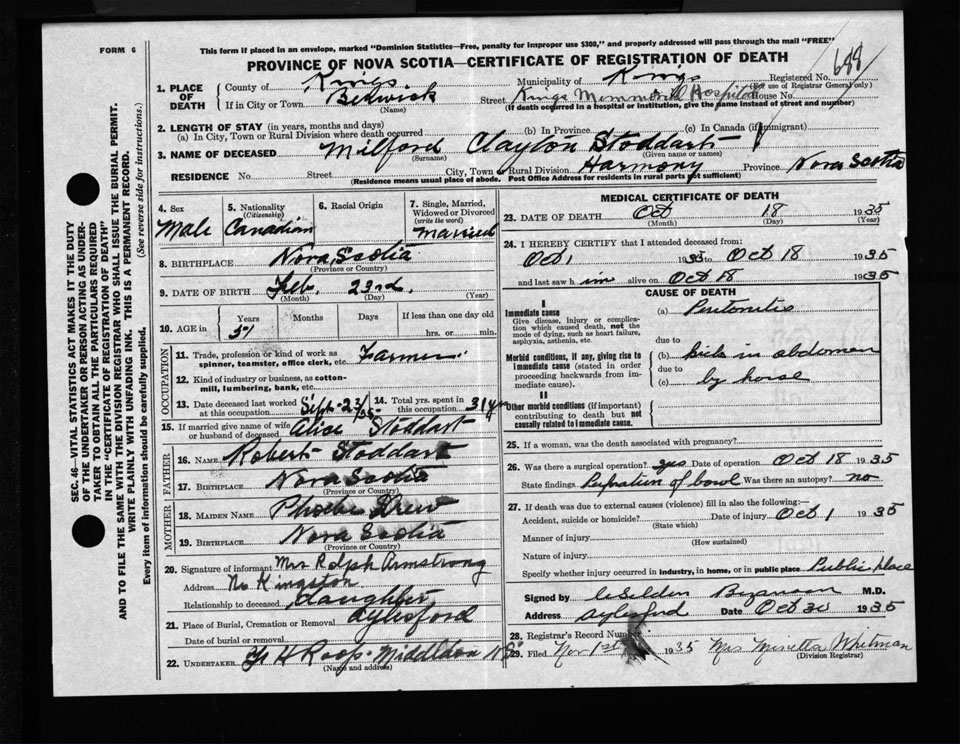 FORM 6
This form if placed in an envelope, marked "Dominion Statistics—Free, penalty for improper use $300," and properly addressed will pass through the mail "FREE"
PROVINCE OF NOVA SCOTIA—CERTIFICATE OF REGISTRATION OF DEATH
688
SEC. 46—VITAL STATISTICS ACT MAKES IT THE DUTY
OF THE UNDERTAKER OR PERSON ACTING AS UNDER-
TAKER TO OBTAIN ALL THE PARTICULARS REQUIRED
IN THE "CERTIFICATE OF REGISTRATION OF DEATH"
AND TO FILE THE SAME WITH THE DIVISION REGISTRAR WHO SHALL ISSUE THE BURIAL PERMIT.
WRITE PLAINLY WITH UNFADING INK. THIS IS A PERMANENT RECORD.
Every item of information should be carefully supplied. (See reverse side for instructions.)
1. PLACE OF DEATH County of Kings Municipality of Kings Registered No. (For use of Registrar General only)
If in City or Town Berwick (Name) Street Kings Memmorill Hospital House No.
(If death occurred in a hospital or institution, give the name instead of street and number)
2. LENGTH OF STAY (in years, months and days)
(a) In City, Town or Rural Division where death occurred (b) In Province (c) In Canada (if immigrant)
3. NAME OF DECEASED Milford Clayton Stoddart
(Surname) (Given name or names)
RESIDENCE No. Street City, Town or Rural Division Harmony Province Nova Scotia
(Residence means usual place of abode. Post Office Address for residents in rural parts not sufficient)
4. Sex Male
5. Nationality (Citizenship) Canadian
6. Racial Origin
7. Single, Married, Widowed or Divorced (write the word) Married
8. BIRTHPLACE Nova Scotia
(Province or Country)
9. DATE OF BIRTH Feb. 23rd,
(Month) (Day) (Year)
10. AGE in Years Months Days If less than one day old
51 hrs. or min.
OCCUPATION
11. Trade, profession or kind of work as spinner, teamster, office clerk, etc. Farmer
12. Kind of industry or business, as cotton-mill, lumbering, bank, etc.
13. Date deceased last worked at this occupation Sept. 23/35
14. Total yrs. spent in this occupation 31 yrs
15. If married give name of wife or husband of deceased Alice Stoddart
FATHER
16. NAME Robert Stoddart
17. BIRTHPLACE Nova Scotia
MOTHER
18. MAIDEN NAME Phoebe Drew
19. BIRTHPLACE Nova Scotia
(Province or Country)
20. Signature of informant Mrs Ralph Armstrong
Address No Kingston
Relationship to deceased daughter,
21. Place of Burial, Cremation or Removal Aylesford
Date of burial or removal
22. UNDERTAKER H Roop. Middleton N S
(Name and address)
MEDICAL CERTIFICATE OF DEATH
23. DATE OF DEATH Oct 18 1935
(Month) (Day) (Year)
24. I HEREBY CERTIFY that I attended deceased from:
Oct 1 1935 to Oct 18 1935
and last saw h im alive on Oct 18 1935
CAUSE OF DEATH
I
Immediate cause (a) Peritonitis
Give disease, injury or complication which caused death, not the mode of dying, such as heart failure, asphyxia, asthenia, etc.
due to
Morbid conditions, if any, giving rise to immediate cause (stated in order proceeding backwards from immediate cause).
(b) kick in abdomen
due to
(c) by horse
II
Other morbid conditions (if important) contributing to death but not causally related to immediate cause.
25. If a woman, was the death associated with pregnancy?
26. Was there a surgical operation? yes Date of operation Oct 18 1935
State findings of bowel Was there an autopsy? no
27. If death was due to external causes (violence) fill in also the following:—
Accident, suicide or homicide? Date of injury Oct 1 1935
(State which)
Manner of injury
(How sustained)
Nature of injury
Specify whether injury occurred in industry, in home, or in public place Public place
Signed by M.D.
Address Aylesford Date Oct 30 1935
28. Registrar's Record Number
29. Filed Nov 1st 1935 Mrs Minetta Whitman
(Division Registrar)